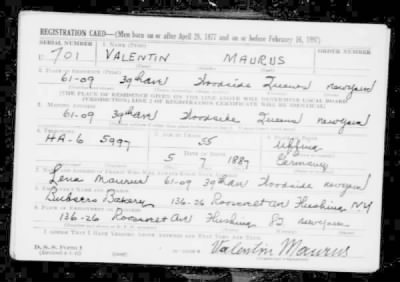 REGISTRATION CARD—(Men born on or after April 28, 1877 and on or before February 16, 1897)
SERIAL NUMBER 1. NAME (Print) ORDER NUMBER
U 701 VALENTIN MAURUS
2. PLACE OF RESIDENCE (Print)
61-09 39th Ave Woodside Queens New York
[THE PLACE OF RESIDENCE GIVEN ON THE LINE ABOVE WILL DETERMINE LOCAL BOARD
JURISDICTION; LINE 2 OF REGISTRATION CERTIFICATE WILL BE IDENTICAL]
3. MAILING ADDRESS
61-09 39th Ave Woodside Queens New York
4. TELEPHONE 5. AGE IN YEARS 6. PLACE OF BIRTH
HA-6 5997 55
DATE OF BIRTH
5 7 1887 Germany
7. NAME AND ADDRESS OF PERSON WHO WILL ALWAYS KNOW YOUR ADDRESS
Lena Maurus 61-09 39th Ave Woodside New York
8. EMPLOYER'S NAME AND ADDRESS
Bakery 136-26 Roosevelt Ave Flushing N.Y
9. PLACE OF EMPLOYMENT OR BUSINESS
136-26 Roosevelt Ave Flushing New York
I AFFIRM THAT I HAVE VERIFIED ABOVE ANSWERS AND THAT THEY ARE TRUE.
D. S. S. Form 1
Valentin Maurus